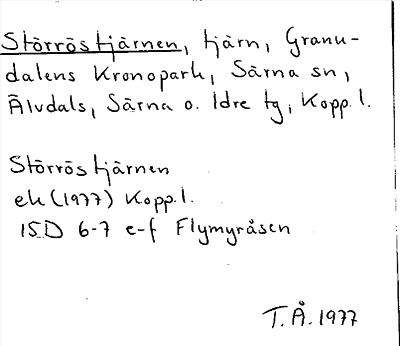 Störröstjärnen, tjärn, Granu-
dalens Kronopark, Särna sn,
Älvdals, Särna o. Idre tg, Kopp. l.
Störröstjärnen
ek (1977) Kopp. l.
15D 6-7 e-f Flymyråsen
T.Å. 1977